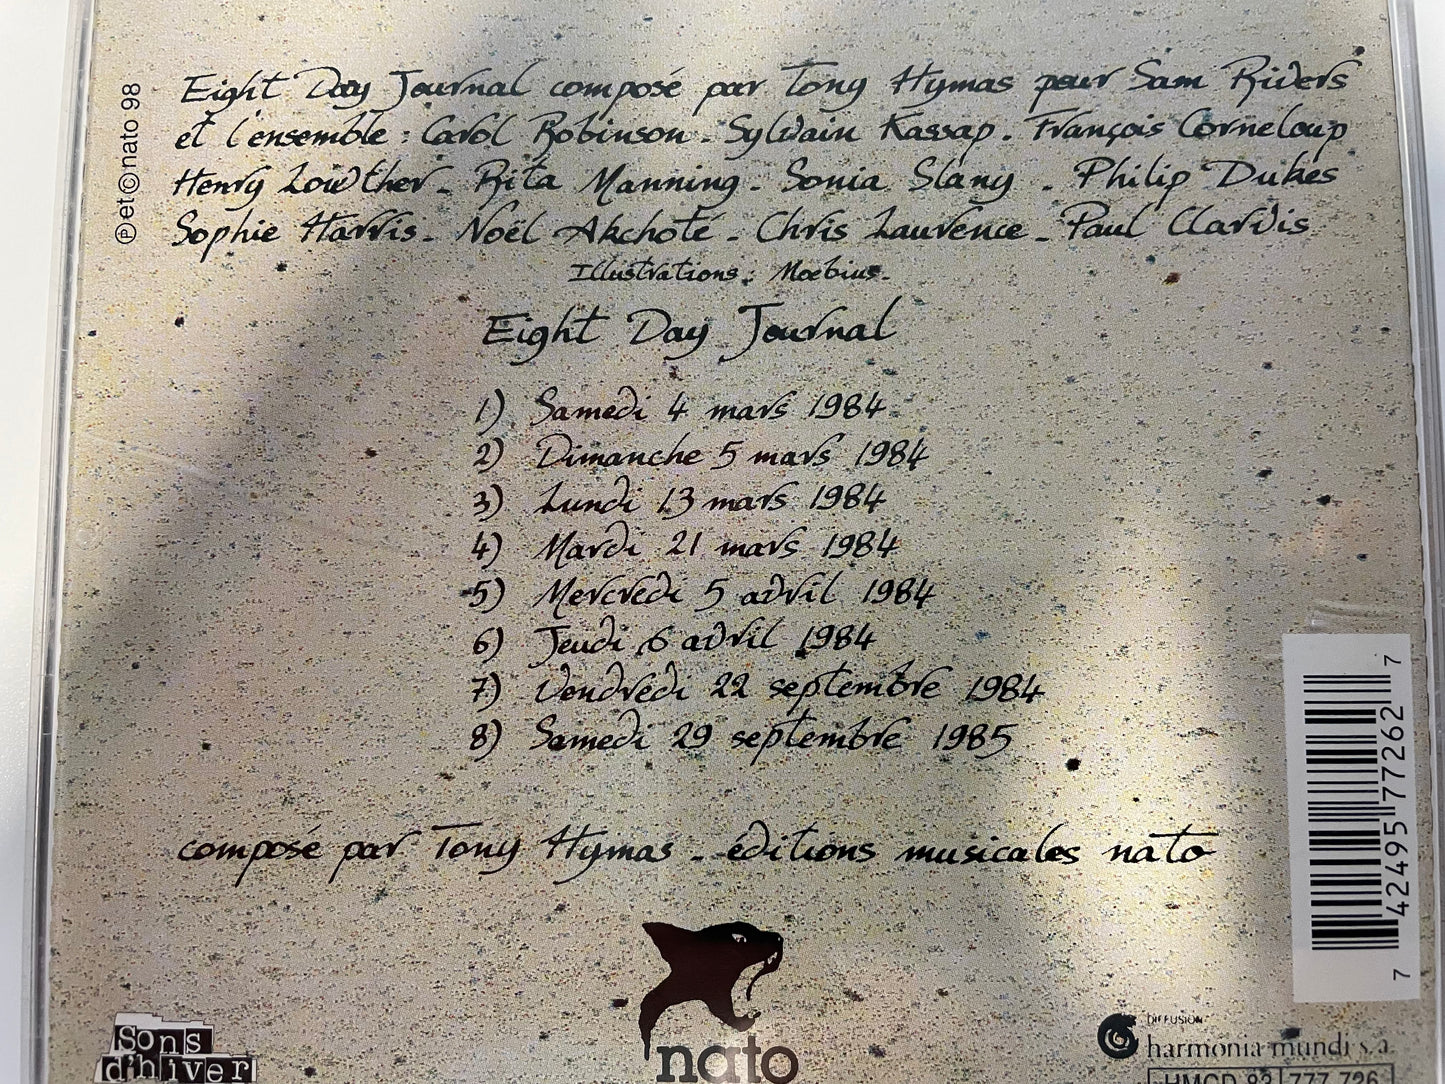 Eight Day Journal composé par Tony Hymas pour Sam Rivers
et l'ensemble : Carol Robinson - Sylvain Kassap - François Corneloup
Henry Lowther - Rita Manning - Sonia Slany - Philip Dukes
Sophie Harris - Noël Akchoté - Chris Laurence - Paul Clarvis
Illustrations : Moebius -
Eight Day Journal
1) Samedi 4 mars 1984
2) Dimanche 5 mars 1984
3) Lundi 13 mars 1984
4) Mardi 21 mars 1984
5) Mercredi 5 avril 1984
6) Jeudi 6 avril 1984
7) Vendredi 22 septembre 1984
8) Samedi 29 septembre 1985
composé par Tony Hymas - éditions musicales nato
℗ et © nato 98
7 42495 77262 7
Sons
d'hiver
nato
DIFFUSION
harmonia mundi s.a.
HMCD 83 777 726